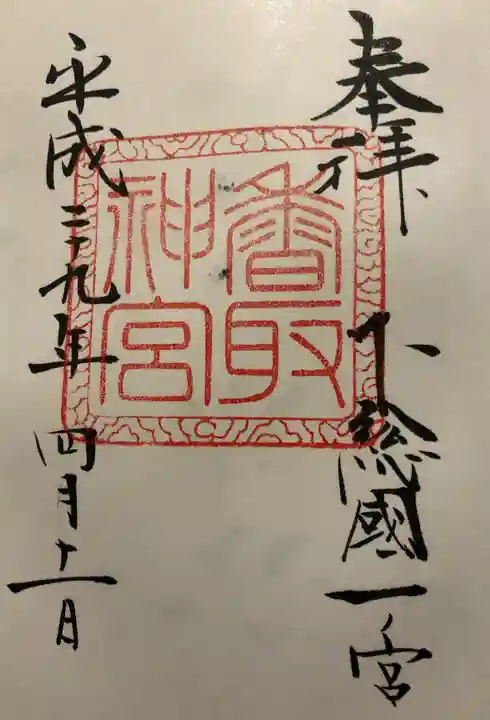 奉拝
下総國一宮
香取神宮
平成二十九年四月十一日